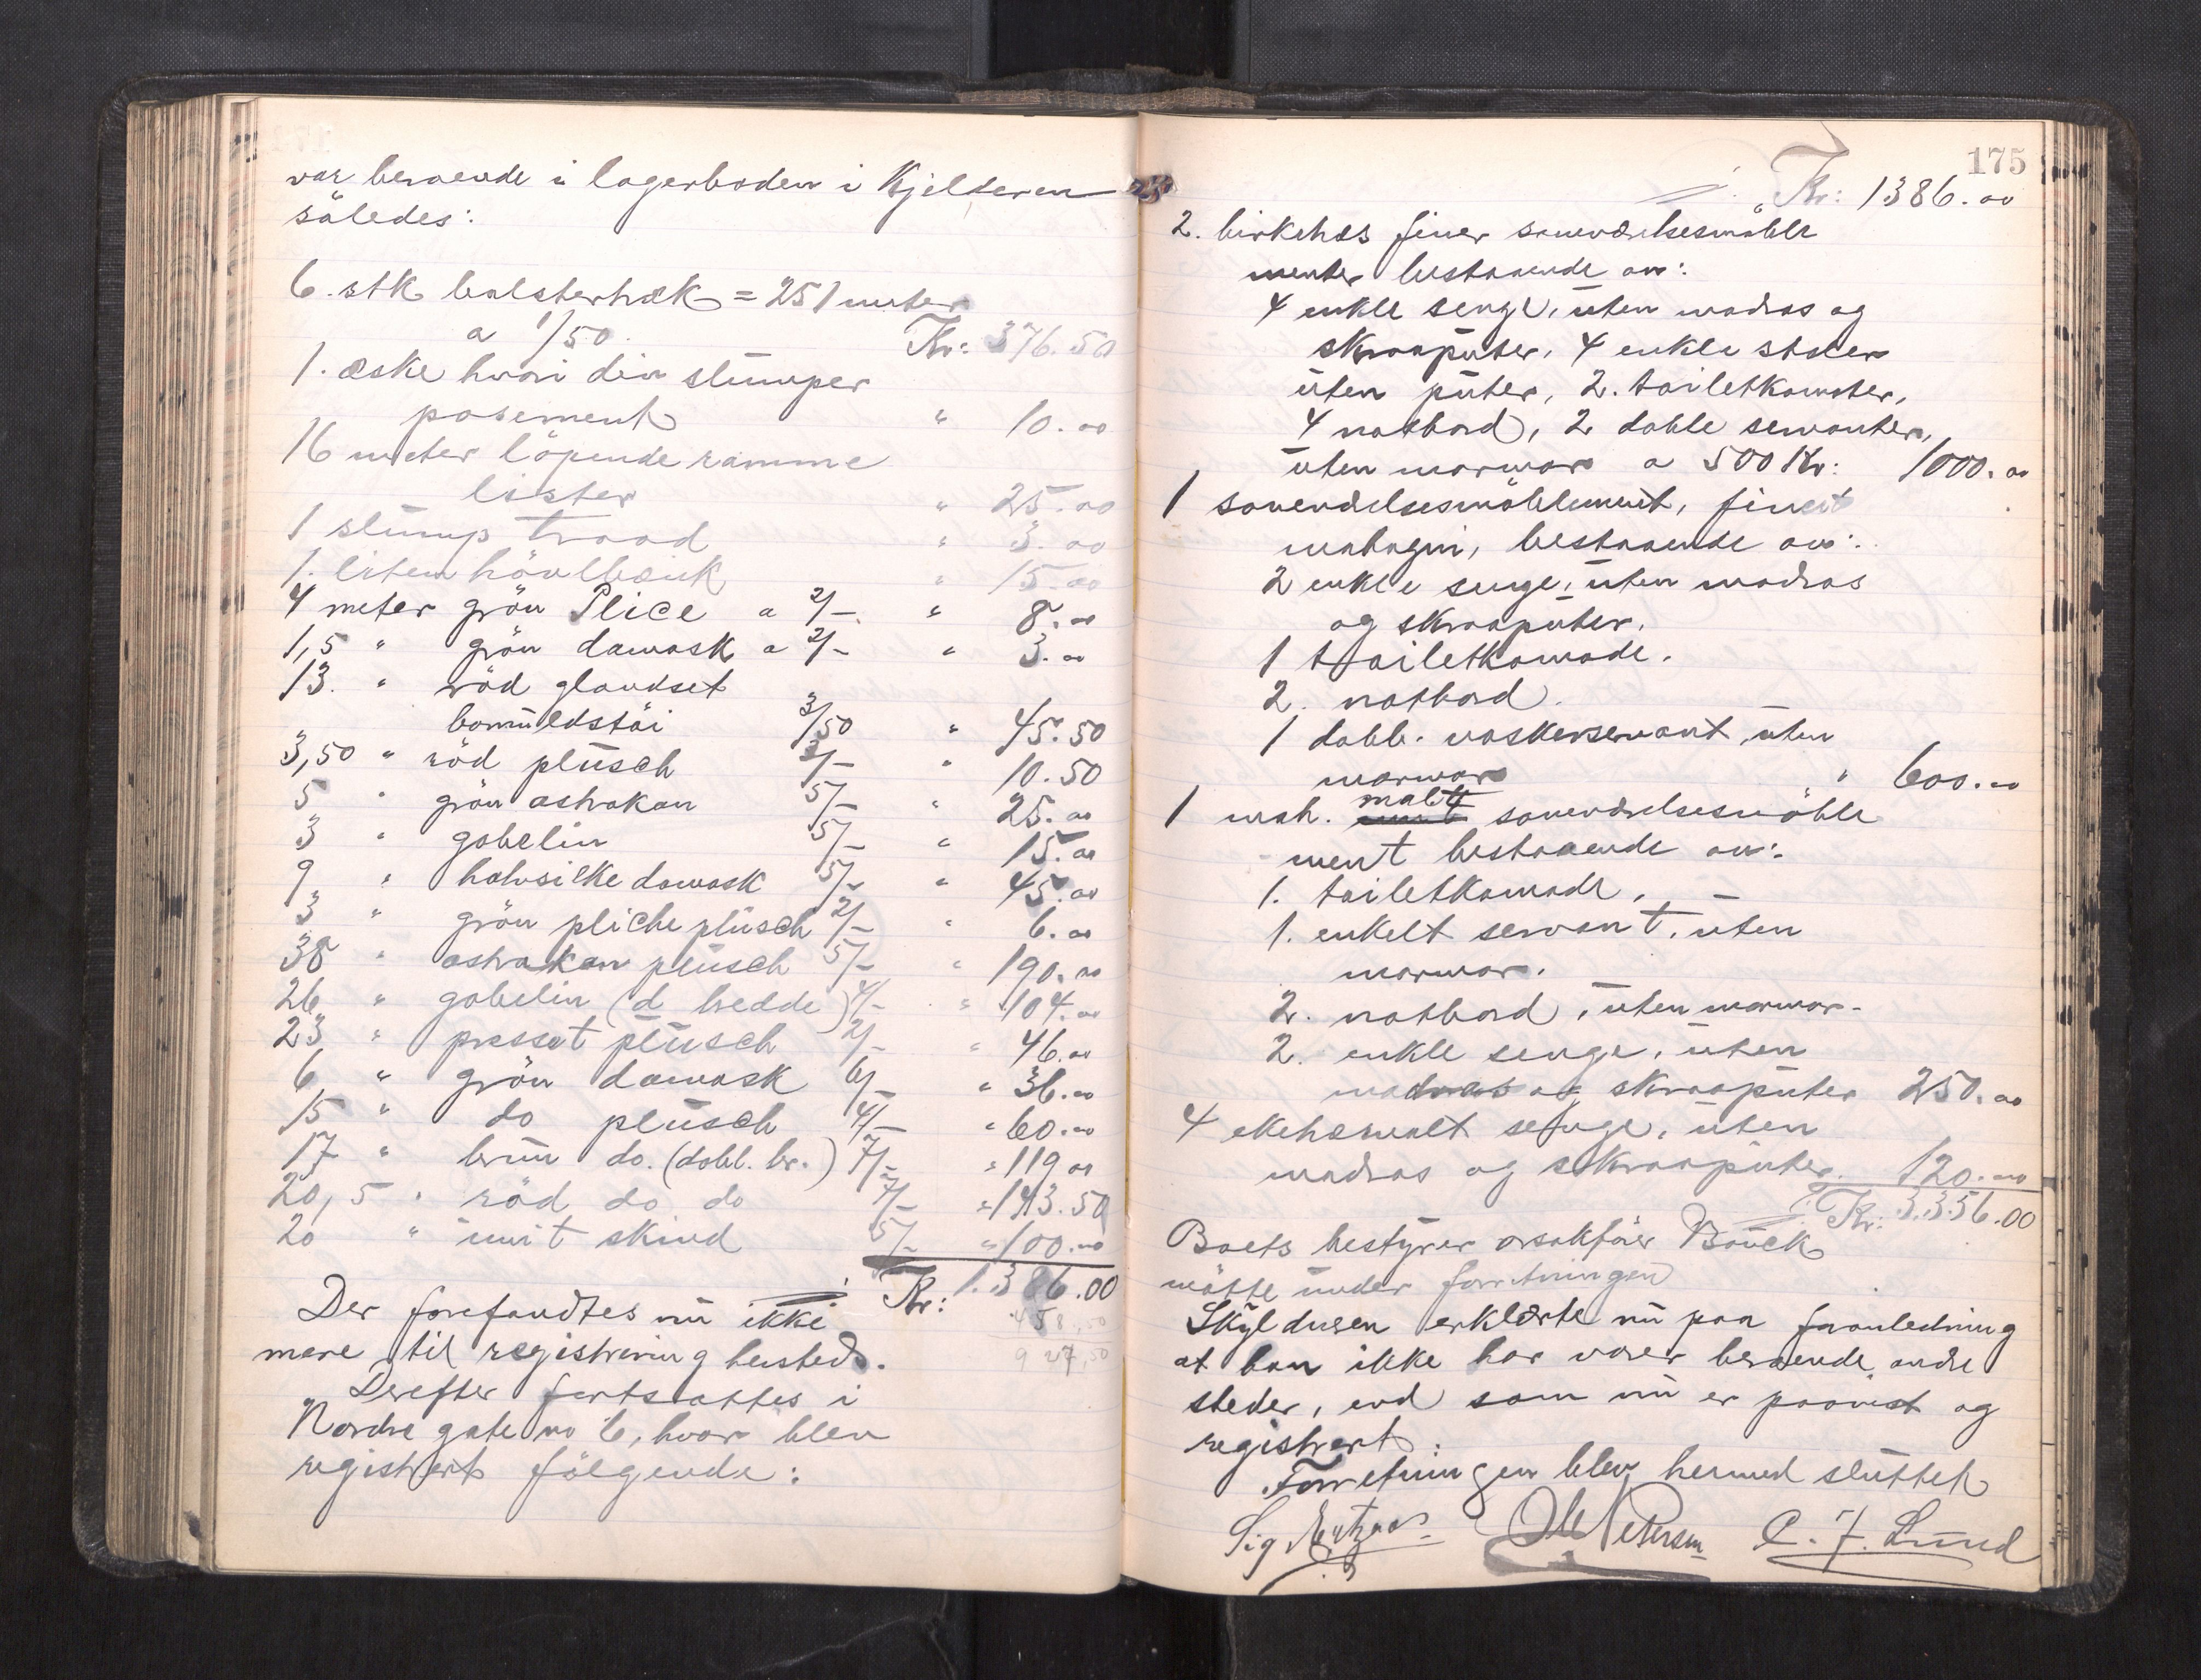 var beroende i lagerboden i Kjelderen
således:
6. stk bolstertræk = 251 meter
a 1/50. Kr: 376.50
1. æske hvori div stumper
posement " 10.00
16 meter löpende ramme
lister " 25.00
1 stump traad " 3.00
1. liten hövlbænk " 15.00
4 meter grön Plice a 2/- " 8.00
1,5 " grön damask a 2/- " 3.00
13. " röd glandset
bomuldstöi 3/50 " 45.50
3,50 " röd plüsch 3/- " 10.50
5 " grön astrakan 5/- " 25.00
3 " gobelin 5/- " 15.00
9 " halvsilke damask 5/- " 45.00
3 " grön pliche plüsch 2/- " 6.00
38 " astrakan plüsch 5/- " 190.00
26 " gobelin (d bredde) 4/- " 104.00
23 " presset plüsch 2/- " 46.00
6 " grön damask 6/- " 36.00
15 " do plüsch 4/- " 60.00
17 " brun do. (dobl. br.) 7/- " 119.00
20,5 " röd do do 7/- " 143.50
20 " imit skind 5/- " 100.00
Kr: 1.386.00
458,50
927,50
Der forefandtes nu ikke
mere til registrering hersteds.
Derefter fortsattes i
Nordre gate no 6, hvor blev
registrert fölgende:
175
Kr: 1386.00
2. birkehos finer soveværelsesmöble
menter bestaaende av:
4 enkle senge, uten madras og
skraaputer, 4 enkle stoler
uten puter, 2. toiletkomoder,
4 natbord, 2 doble servanter,
uten marmor a 500 Kr: 1000.00
1 soverelsesmöblement, finert
mahagni, bestaaende av:
2 enkle senge, uten madras
og skraaputer.
1 toiletkomode.
2. natbord.
1 dobb. vaskeservant uten
marmor " 600.00
1 mah. malt soveværelsesmöble
ment bestaaende av:
1. toiletkomode,
1. enkelt servant, uten
marmor.
2. natbord, uten marmor.
2. enkle senge, uten
madras og skraaputer 250.00
4 ekehosmalt senge, uten
madras og skraaputer. 120.00
Kr: 3.356.00
Boets bestyrer orsakförer Bauck
mötte under forretningen
Skyldneren erklærte nu paa foranledning
at han ikke har varer beroende andre
steder, end som nu er paavist og
registrert.
Forretningen blev hermed sluttet
Sig Ole Petersen C. F. Lund